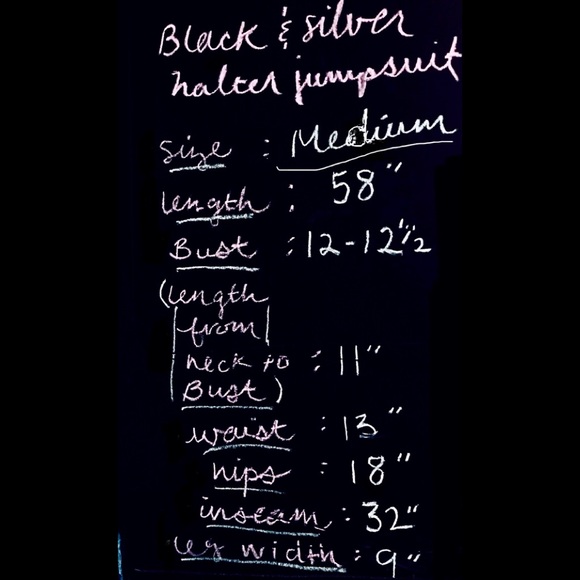 Black & silver
halter jumpsuit
Size : Medium
length : 58"
Bust : 12-12 1/2
(length
from
neck to : 11"
Bust)
waist : 13"
hips : 18"
inseam : 32"
leg width : 9"